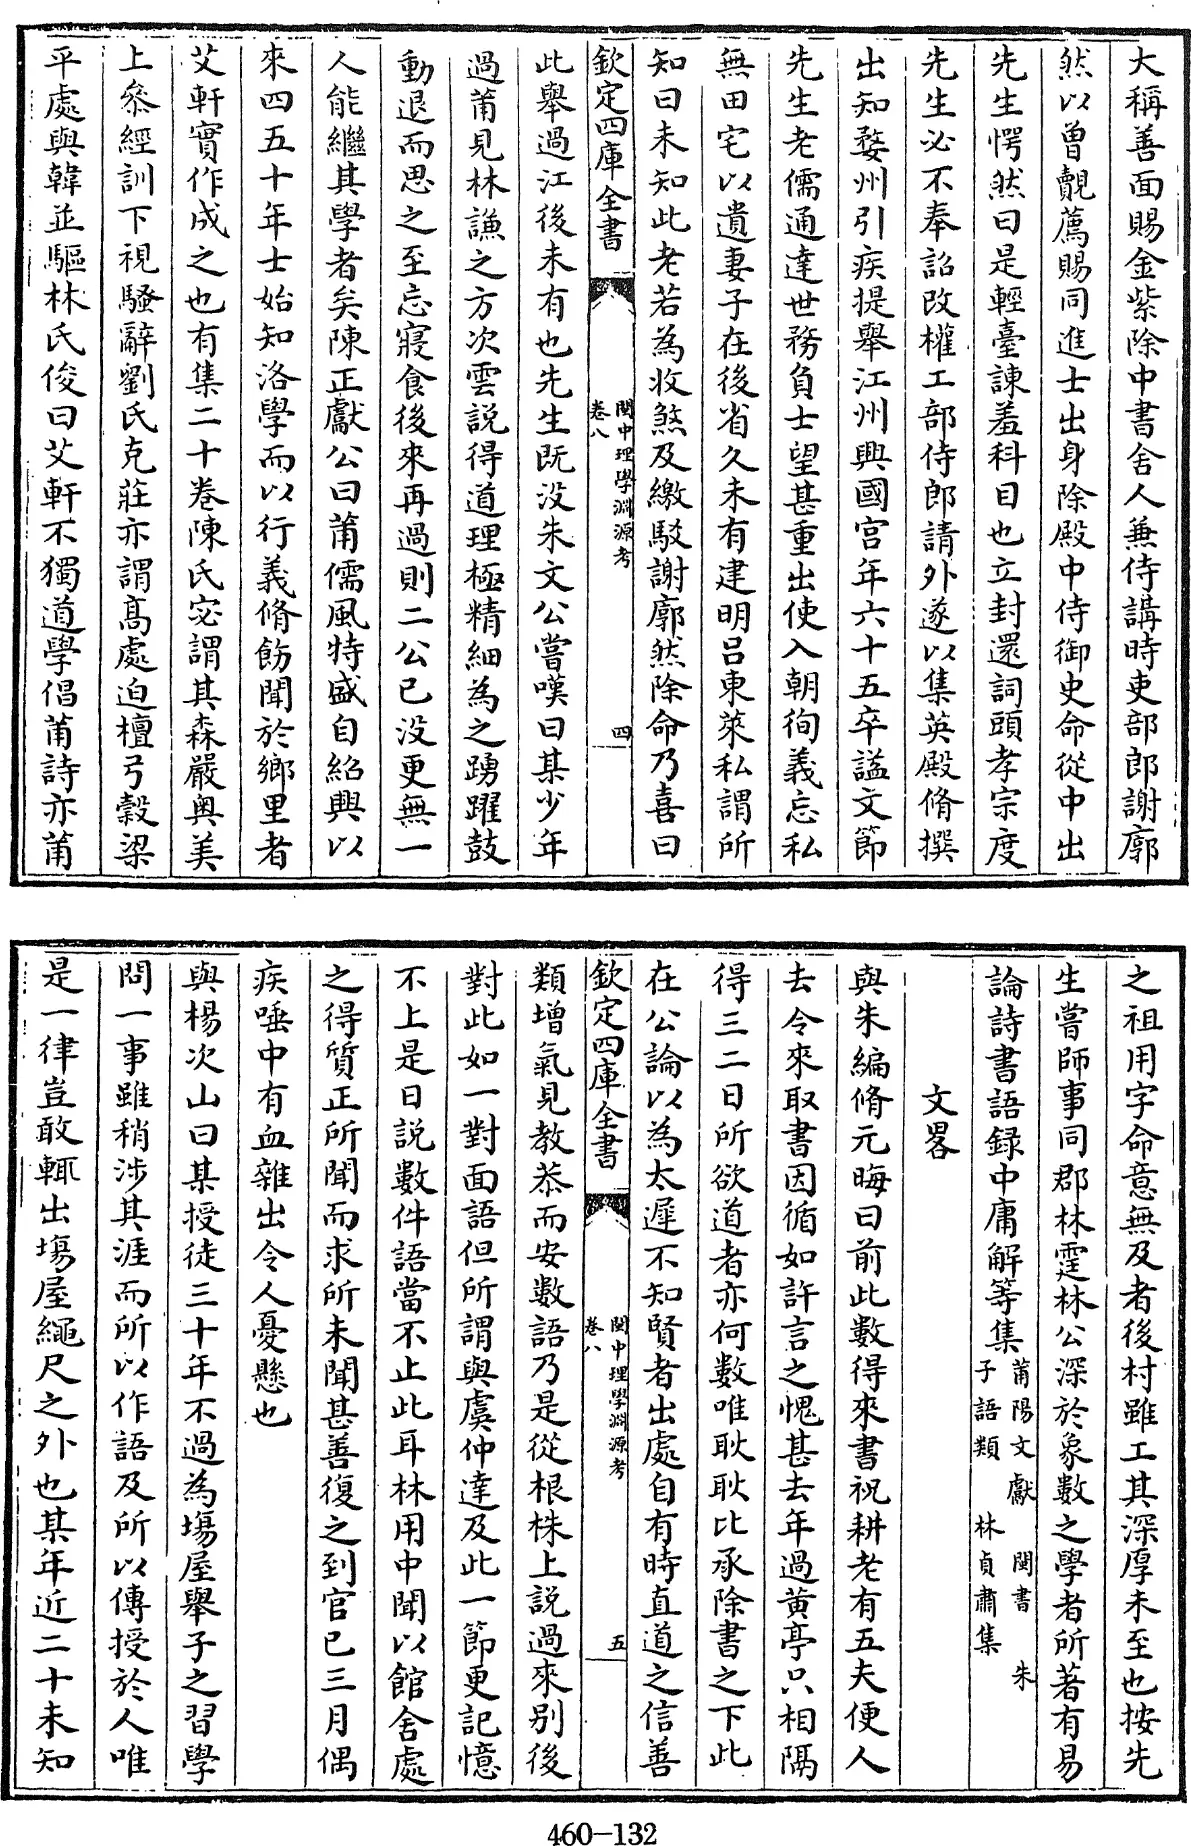 大稱善面賜金紫除中書舍人兼侍講時吏部郎謝廓
然以曾覿薦賜同進士出身除殿中侍御史命從中出
先生愕然曰是輕臺諫羞科目也立封還詞頭孝宗度
先生必不奉詔改權工部侍郎請外遂以集英殿脩撰
出知婺州引疾提舉江州興國宫年六十五卒謚文節
先生老儒通達世務負士望甚重出使入朝徇義忘私
無田宅以遺妻子在後省久未有建明吕東萊私謂所
知曰未知此老若為收煞及繳駁謝廓然除命乃喜曰
欽定四庫全書
閩中理學淵源考
卷八
四
此舉過江後未有也先生既沒朱文公嘗嘆曰某少年
過莆見林謙之方次雲説得道理極精細為之踴躍鼓
動退而思之至忘寢食後來再過則二公已没更無一
人能繼其學者矣陳正獻公曰莆儒風特盛自紹興以
來四五十年士始知洛學而以行義脩飭聞於鄉里者
艾軒實作成之也有集二十卷陳氏宓謂其森嚴奥美
上叅經訓下視騷辭劉氏克莊亦謂高處迫檀弓穀梁
平處與韓並驅林氏俊曰艾軒不獨道學倡莆詩亦莆
之祖用字命意無及者後村雖工其深厚未至也按先
生嘗師事同郡林霆林公深於象數之學者所著有易
論詩書語録中庸解等集莆陽文獻 閩書 朱
子語類 林貞肅集
文畧
與朱編脩元晦曰前此數得來書祝耕老有五夫便人
去令來取書因循如許言之愧甚去年過黄亭只相隔
得三二日所欲道者亦何數唯耿耿比承除書之下此
在公論以為太遲不知賢者出處自有時直道之信善
欽定四庫全書
閩中理學淵源考
卷八
五
類增氣見教恭而安數語乃是從根株上説過來别後
對此如一對面語但所謂與虞仲達及此一節更記憶
不上是日説數件語當不止此耳林用中聞以館舍處
之得質正所聞而求所未聞甚善復之到官已三月偶
疾唾中有血雜出令人憂懸也
與楊次山曰某授徒三十年不過為塲屋舉子之習學
問一事雖稍涉其涯而所以作語及所以傳授於人唯
是一律豈敢輒出塲屋繩尺之外也某年近二十未知
460-132